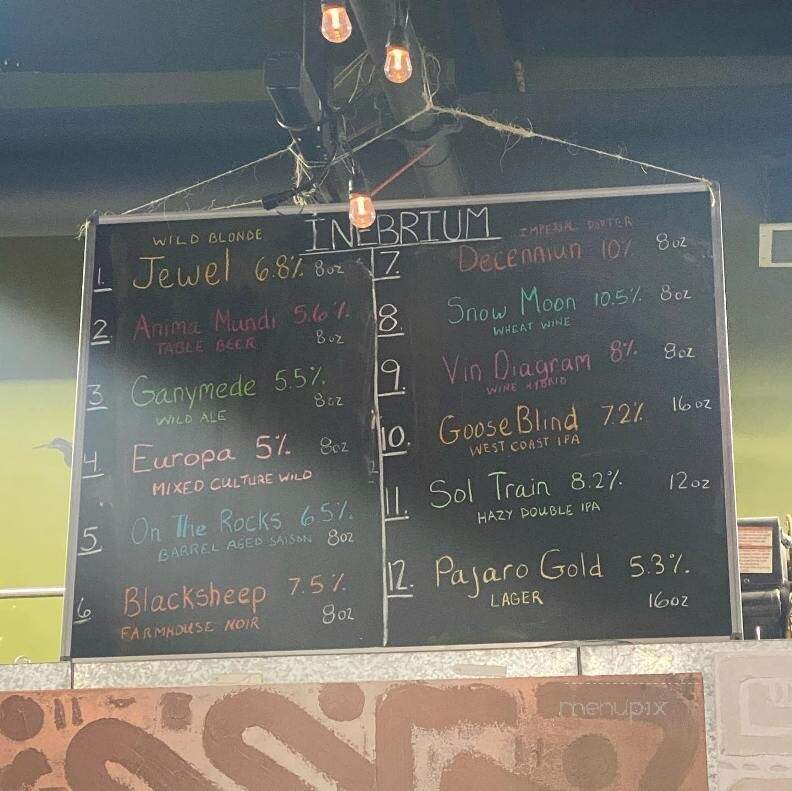 INEBRIUM
WILD BLONDE
1. Jewel 6.8% 8oz
2. Anima Mundi 5.6%
TABLE BEER 8oz
3. Ganymede 5.5%
WILD ALE 8oz
4. Europa 5% 8oz
MIXED CULTURE WILD
5. On The Rocks 6.5%
BARREL AGED SAISON 8oz
6. Blacksheep 7.5%
FARMHOUSE NOIR 8oz
IMPERIAL PORTER
7. Decenniun 10% 8oz
8. Snow Moon 10.5% 8oz
WHEAT WINE
9. Vin Diagram 8% 8oz
WINE HYBRID
10. Goose Blind 7.2% 16oz
WEST COAST IPA
11. Sol Train 8.2% 12oz
HAZY DOUBLE IPA
12. Pajaro Gold 5.3%
LAGER 16oz
menupix